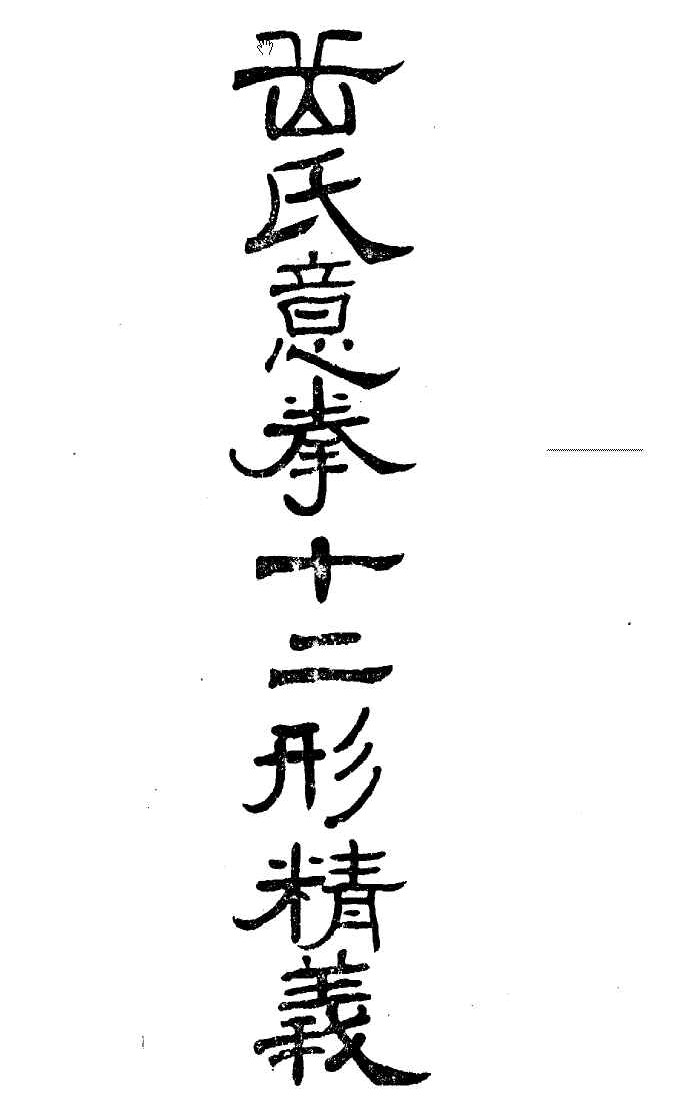 岳氏意拳十二形精義